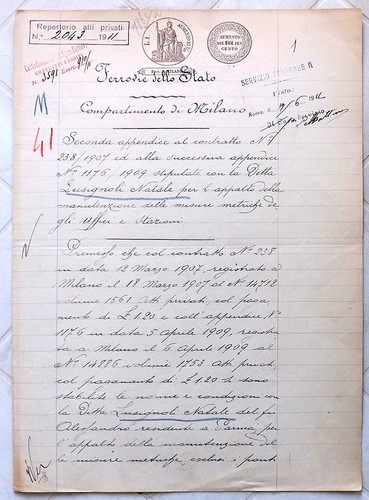 Repertorio atti privati
N.° 2043 1911
L.1
AUMENTO
DEL DUE PER
CENTO
1
N. 3591
Ferrovie dello Stato
SERVIZIO CENTRALE R
Visto:
Compartimento di Milano
Roma, 10/6 1912
Il Capo Servizio
11
41
Seconda appendice al contratto N.°
238/1907 ed alla successiva appendice
N.° 1176/1909 stipulati con la Ditta
Lusignoli Natale per l'appalto della
manutenzione delle misure metriche de
gli Uffici e Stazioni.
Premesso che col contratto N.° 238
in data 12 Marzo 1907, registrato a
Milano il 18 Marzo 1907 al N.° 14712
volume 1561 Atti privati col paga
mento di £ 1.20 e coll'appendice N.°
1176 in data 5 Aprile 1909, registra
ta a Milano il 6 Aprile 1909 al
N.° 14886 volume 1753 Atti privati,
col pagamento di £ 1.20 si sono
stabilite le norme e condizioni con
la Ditta Lusignoli Natale del fu
Alessandro residente a Parma per
l'appalto della manutenzione del
le misure metriche, esclusi i ponti